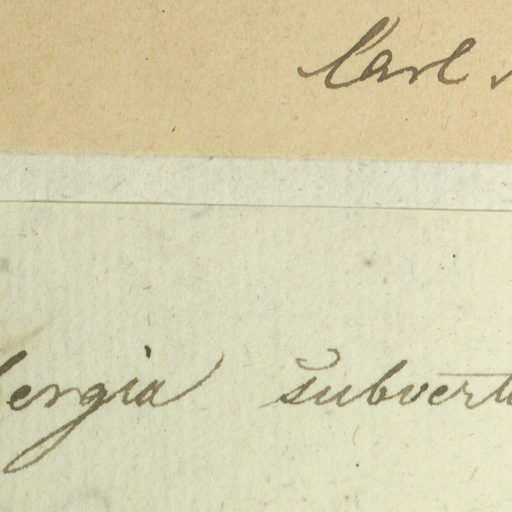 Carl
ergia subvert